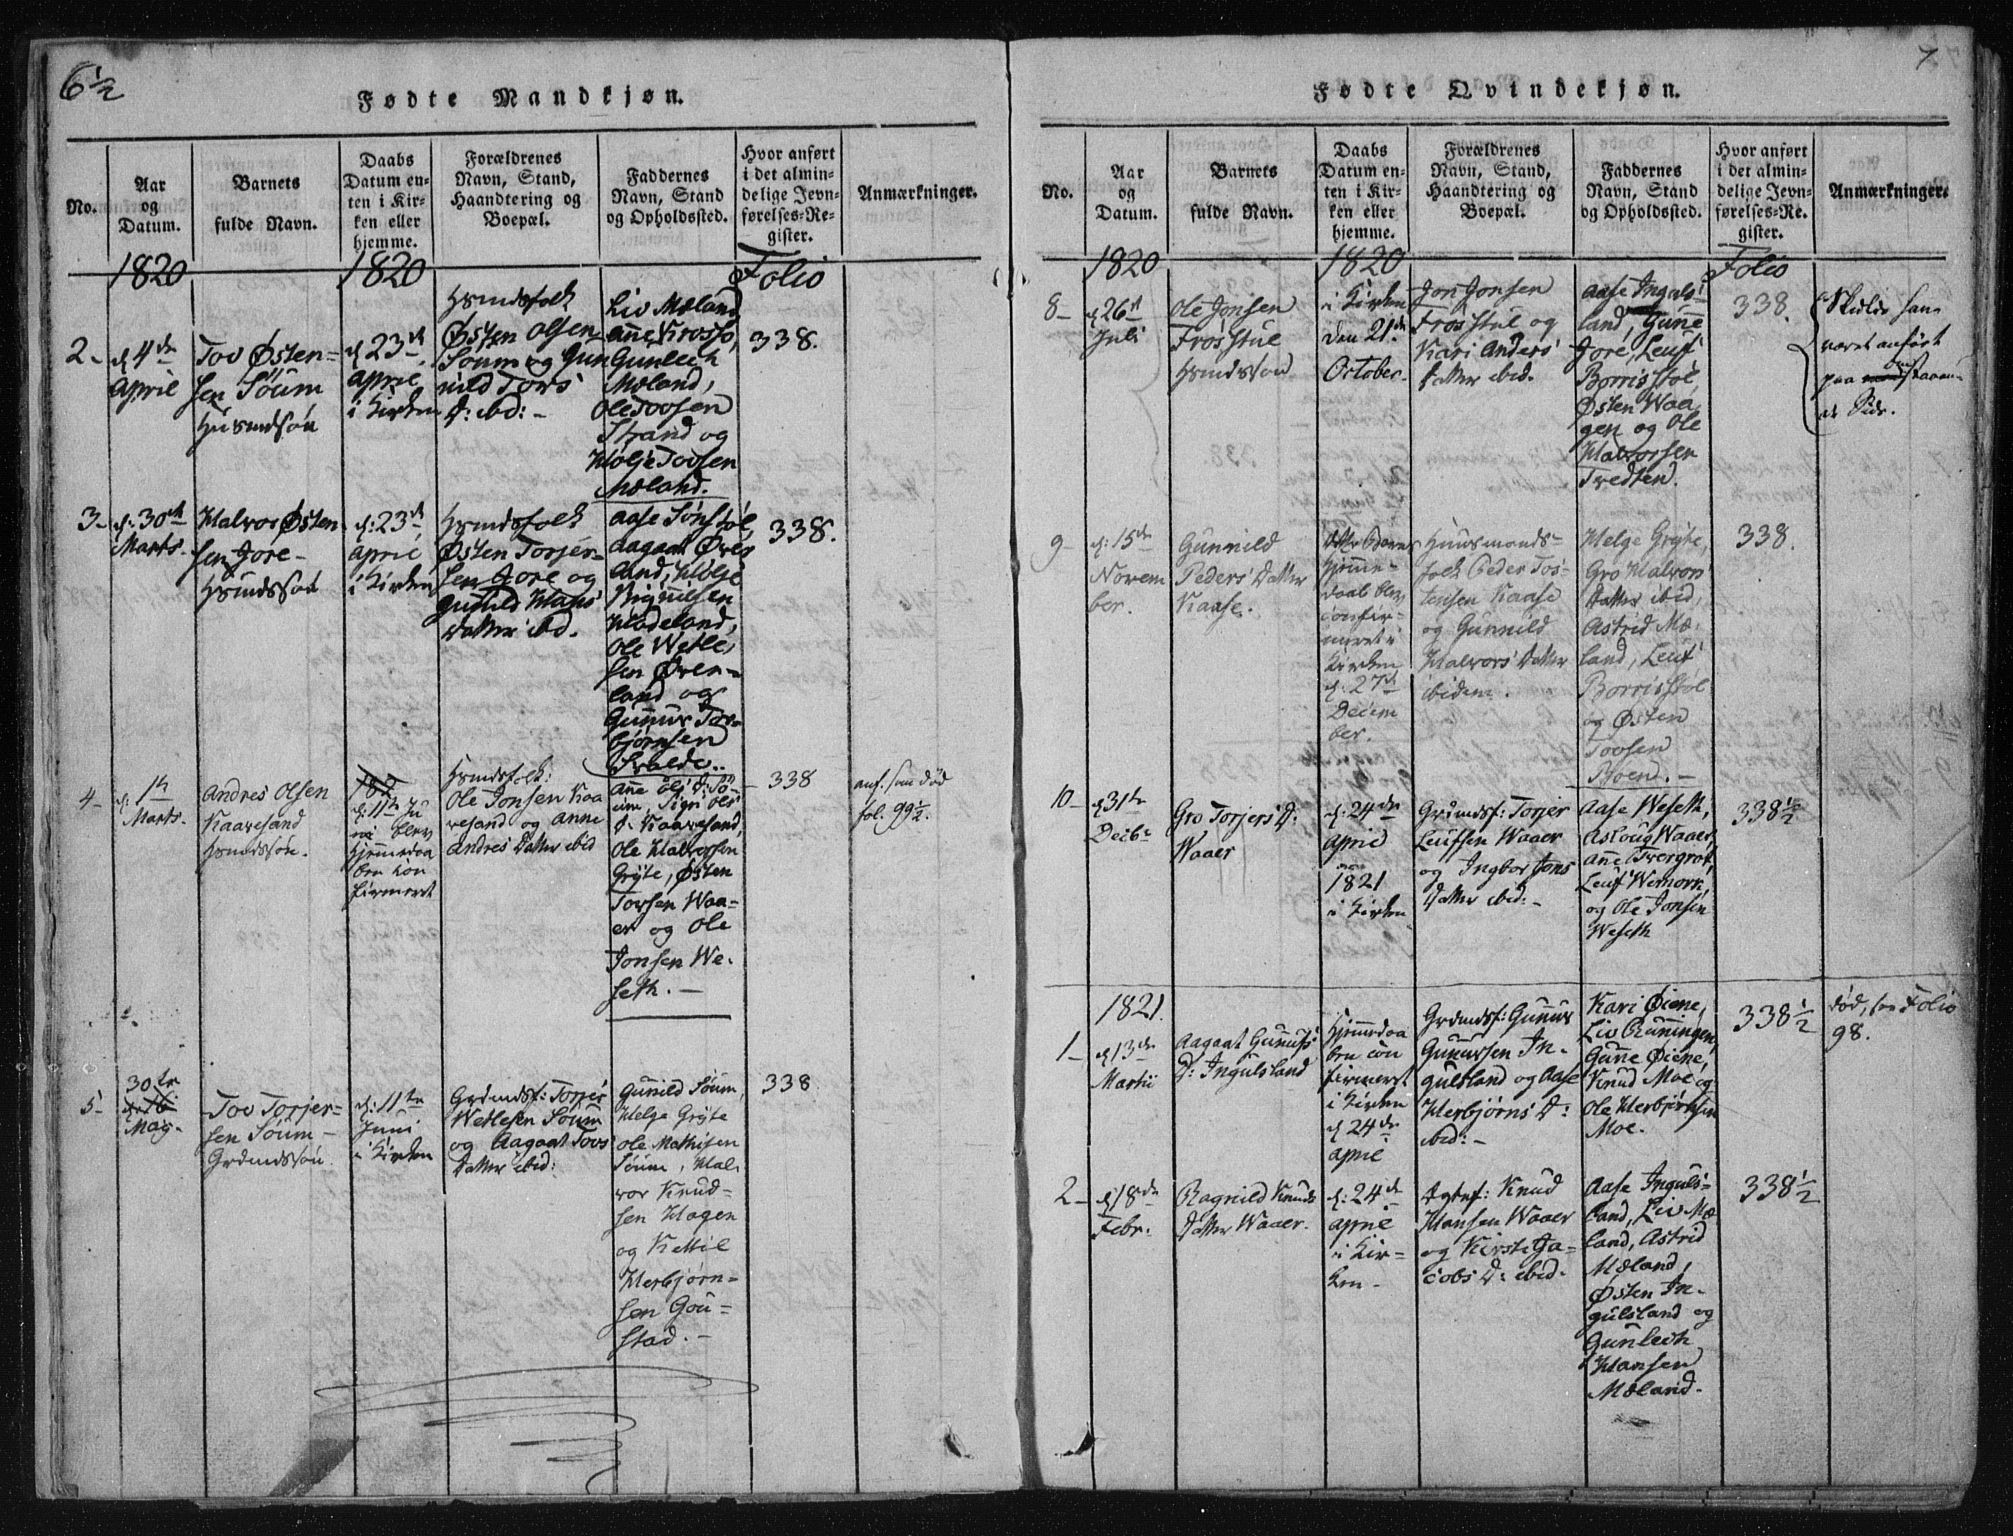 6½
Fødte Mandkjøn.
No.
Aar
og
Datum.
Barnets
fulde Navn.
Daabs
Datum en-
ten i Kir-
ken eller
hjemme.
Forældrenes
Navn, Stand,
Haandtering og
Boepæl.
Faddernes
Navn, Stand
og Opholdssted.
Hvor anført
i det almin-
delige Jevn-
førelses-Re-
gister.
Anmærkninger.
1820
1820
Folio
2-
d. 4de
April
Tov Østen-
sen Søum
Huusmdsøn
d. 23de
April
i Kirken
Hsmdsfolk
Østen Olsen
Søum og Gun
nild Tovs
D: ibd: -
Liv Mæland
Anne Krosso,
Gunlech
Mæland,
Ole Tovsen
Strand og
Holje Tovsen
Mæland.
338.
3-
d: 30te
Marts.
Halvor Østen
sen Jore-
Hsmdssøn
d: 23de
April
i Kirken
Hsmdsfolk
Østen Torjer-
sen Jore og
Gunild Hans
Datter ibd.
Aase Sønstøl,
Aagaat Øver
land, Holje
Hødeland,
Ole Wetle,
sen Øver-
land og
Gunnus Tor-
bjørnsen
Svalde..
338.
4-
d: 1te
Marts.
Andres Olsen
Kaavesand
Hsmdssøn.
182
d: 11te Ju
ni blev
Hjemmedaa
ben con
firmeret
Hsmdsfolk:
Ole Jonsen Kaa
vesand og Anne
Andres Datter ibid
Ane Ols D: Sø-
um, Sigri Ols
D. Kaavesand,
Ole Halvorsen
Grøte, Østen
Torsen Waa-
er og Ole
Jonsen We-
seth. -
338
anf. som død
fol. 99½.
5-
30te
d: 16
May.
Tov Torjer-
sen Søum-
Grdmdssøn.
d: 11te
Juni
i Kirken
Grdmdsf: Torjer
Wetlesen Søum
og Aagaat Tovs
Datter ibid:
Gunild Søum,
Helge Grøte
Ole Mathisen
Søum, Hal-
vor Knud-
sen Hagen
og Kettil
Herbjørn-
sen Gou-
stad. -
338
7
Fødte Qvindekjøn.
No.
Aar
og
Datum.
Barnets
fulde Navn.
Daabs
Datum en-
ten i Kir-
ken eller
hjemme.
Forældrenes
Navn, Stand,
Haandtering og
Boepæl.
Faddernes
Navn, Stand
og Opholdssted.
Hvor anført
i det almin-
delige Jevn-
førelses-Re.
gister.
Anmærkninger.
1820
1820
Folio
8-
d 26de
Juli
Ole Jonsen
Frøsstul
Hsmdssøn
i Kirken
den 21de
October.
Jon Jonsen
Frøsstul og
Kari Anders
Datter ibid.
Aase Inguls-
land, Gunne
Jore, Leuf
Borrisstøl,
Østen Waa
gen og Ole
Halvorsen
Tvedten.
338.
Skulde han
været anført
paa modstaaen-
de Side.
9-
d: 15de
Novem
ber.
Gunnild
Peders Datter
Kaase.
Hjemme-
daab blev
confir-
meret i
Kirken
d. 27de
Decem
ber.
Huusmands-
folk Peder Tos-
tensen Kaase
og Gunnild
Halvors Datter
ibidem.
Helge Grøte,
Gro Halvors
Datter ibid,
Astrid Mæ-
land, Leuf
Borrisstøl
og Østen
Tovsen
Boen. -
338.
10-
d 31te
Decbr
Gro Torjers D:
Waaer
d: 24de
April
1821
i Kirken
Grdmdsf: Torjer
Leufsen Waaer
og Ingbor Jons
Datter ibid: -
Aase Weseth,
Aslaug Waaer,
Anne Tvergrot,
Leuf Wemork,
og Ole Jonsen
Weseth
338½
1821.
1-
d 13de
Martii
Aagaat Gunufs
D: Ingulsland
Hjemmedaa
ben con
firmeret
i Kirken
d 24de
April
Grdmdsf: Gunus
Gunussen In-
gulsland og Aase
Herbjørns D:
ibid: -
Kari Øiene,
Liv Runningen,
Gunne Øiene,
Knud Moe og
Ole Herbjørnsen
Moe.
338½
død, see Folio
98.
2-
d 18de
Febr.
Ragnild Knuds
Datter Waaer.
d: 24de
April
i Kir-
ken-
Knud
Hansen Waaer
og Kirsti Ja-
cobs D: ibid.
Aase Inguls-
land, Liv Mæ
land, Astrid
Mæland,
Østen In-
gulsland og
Gunlech
Hansen
Mæland.
338½